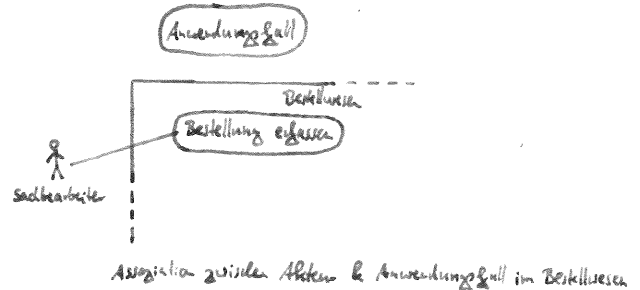 Anwendungsfall
Bestellwesen
Bestellung erfassen
Sachbearbeiter
Assoziation zwischen Akteur & Anwendungsfall im Bestellwesen